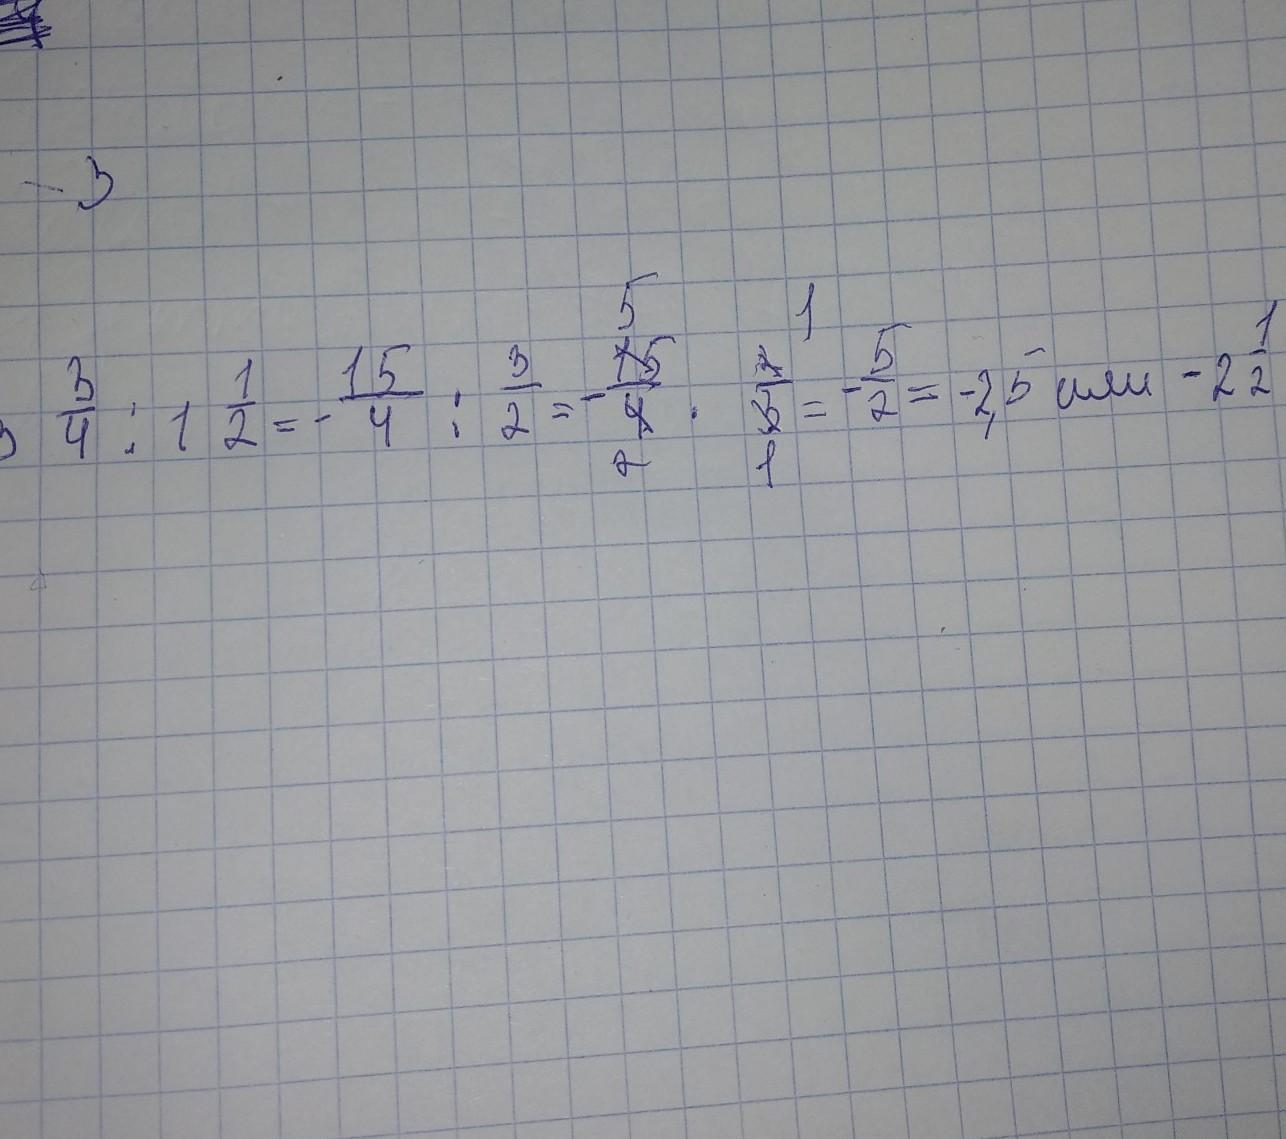 -3
3 3/4 : 1 1/2 = - 15/4 : 3/2 = - 15/4 · 2/3 = - 5/2 = -2,5 или -2 1/2